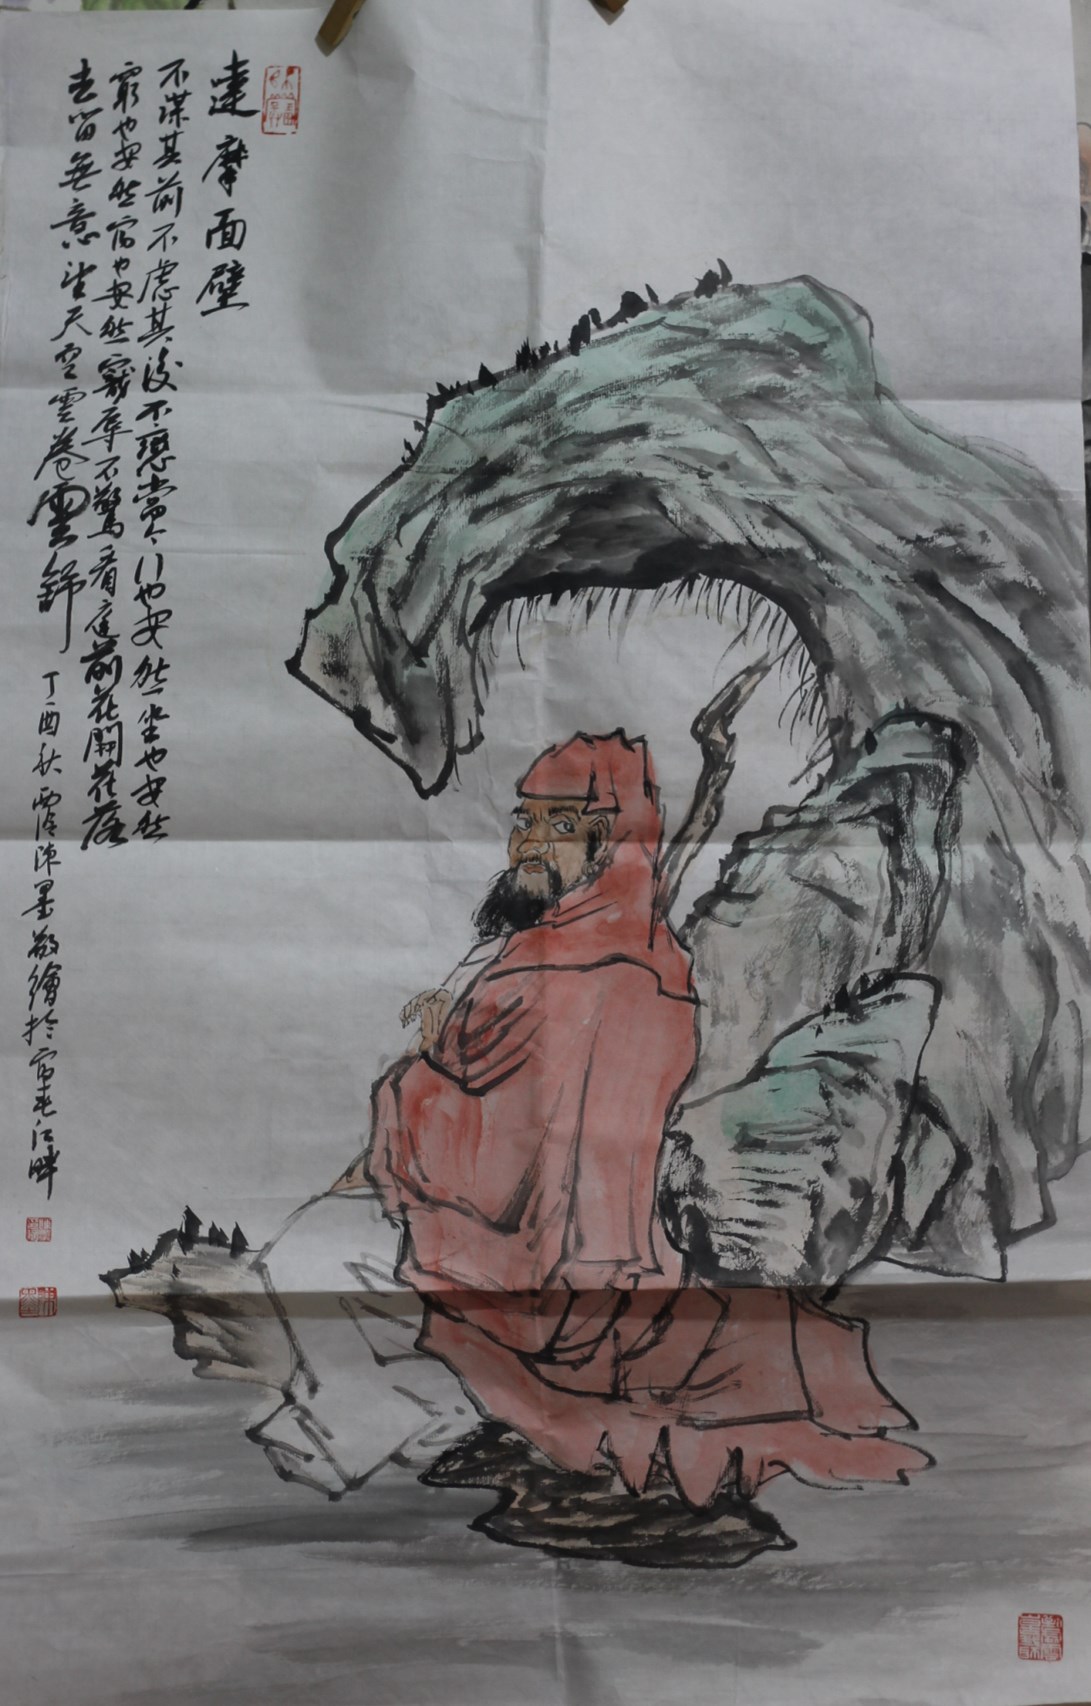 達摩面壁
不謀其前不慮其後不戀當今行也安然坐也安然
窮也安然富也安然寵辱不驚看庭前花開花落
去留無意望天空雲卷雲舒
丁酉秋霞陳墨敬繪於富春江畔